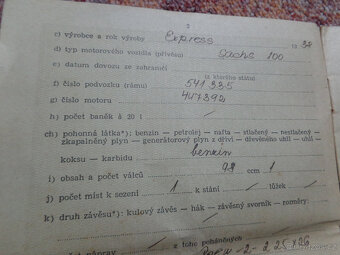 3
c) výrobce a rok výroby Express 19 38
d) typ motorového vozidla (přívěsu) Sachs 100
e) datum dovozu ze zahraničí
(z kterého státu)
f) číslo podvozku (rámu) 541335
g) číslo motoru 447392
h) počet baněk à 20 l /
ch) pohonná látka*): benzin — petrolej — nafta — stlačený — nestlačený —
zkapalněný plyn — generátorový plyn z dříví — dřevěného uhlí — uhlí —
koksu — karbidu benzin
i) obsah a počet válců 98 ccm 1
j) počet míst k sezení 1 k stání / lůžek /
k) druh závěsu*): kulový závěs — hák — závěsný svorník — roměry:
z toho poháněných